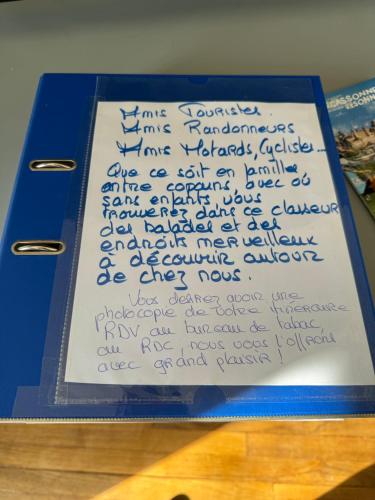 Amis Touristes.
Amis Randonneurs
Amis Motards, Cyclistes...
Que ce soit en famille,
entre copains, avec où
sans enfants vous
trouverez dans ce classeur
des balades et des
endroits merveilleux
à découvrir autour
de chez nous.
Vous desirez avoir une
photocopie de votre itinéraire
RDV au bureau de tabac
au RDC, nous vous l'offrons
avec grand plaisir !
CARCASSONNE